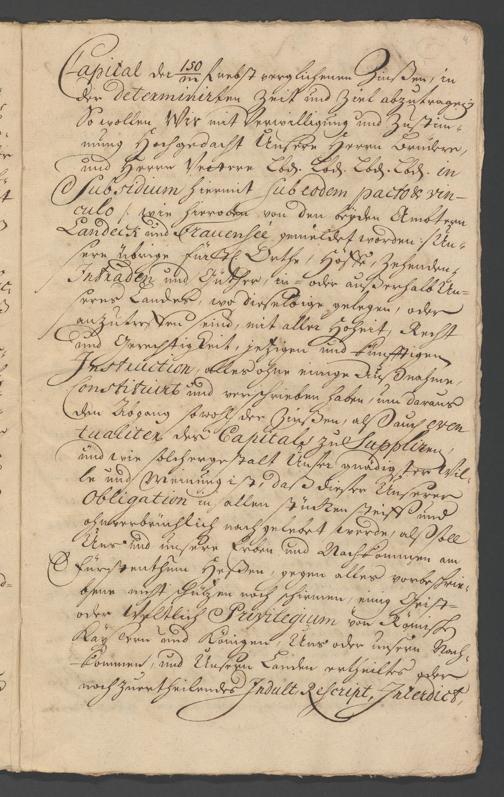 Capital der 150/m nebst verglichenen Zinßen, in
der determinirten Zeit und Ziel abzutragen,
So wollen Wir mit Verwilligung und Zustim-
mung Hochgedacht Unsere Herrn Brudere,
und Herrn Vettere Lbd. Lbd. Lbd. Lbd. in
Subsidium hiermit sub eodem pacto & vin-
culo, wie hieroben von den beyden Ämbtern
Landeck und Frauensee gemeldet worden, Un-
sere übrige Fürstl. Orthe, Höffe, Zehenden,
Intraden und Güther, in- oder außerhalb Un-
seres Landes, wo dieselbige gelegen, oder
anzutreffen sind, mit aller Hoheit, Recht
und Gerechtigkeit, jetzigen und künfftigen
Instruction, alles ohne einige Außnahme,
constituirt und verschrieben haben, um daraus
den Abgang sowohl der Zinßen, alß auch even-
tualiter des Capitals zu Suppliren,
und wie solchergestalt Unser gnädigster Wil-
le und Meinung ist, daß dieser Unserer
Obligation in allen stücken steiff und
ohnverbrüchlich nachgelebt werde, alß soll
Uns und unsere Erben und Nachkommen am
Fürstenthum Heßen, gegen alles vorbeschrie-
bene nicht schützen noch schirmen, einig Geist-
oder Weltlich Privilegium von Römisch.
Kaysern und Königen, Uns oder unsern Nach-
kommen, und Unsern Landen ertheiltes oder
noch zuertheilendes Indult Rescript, Interdict,